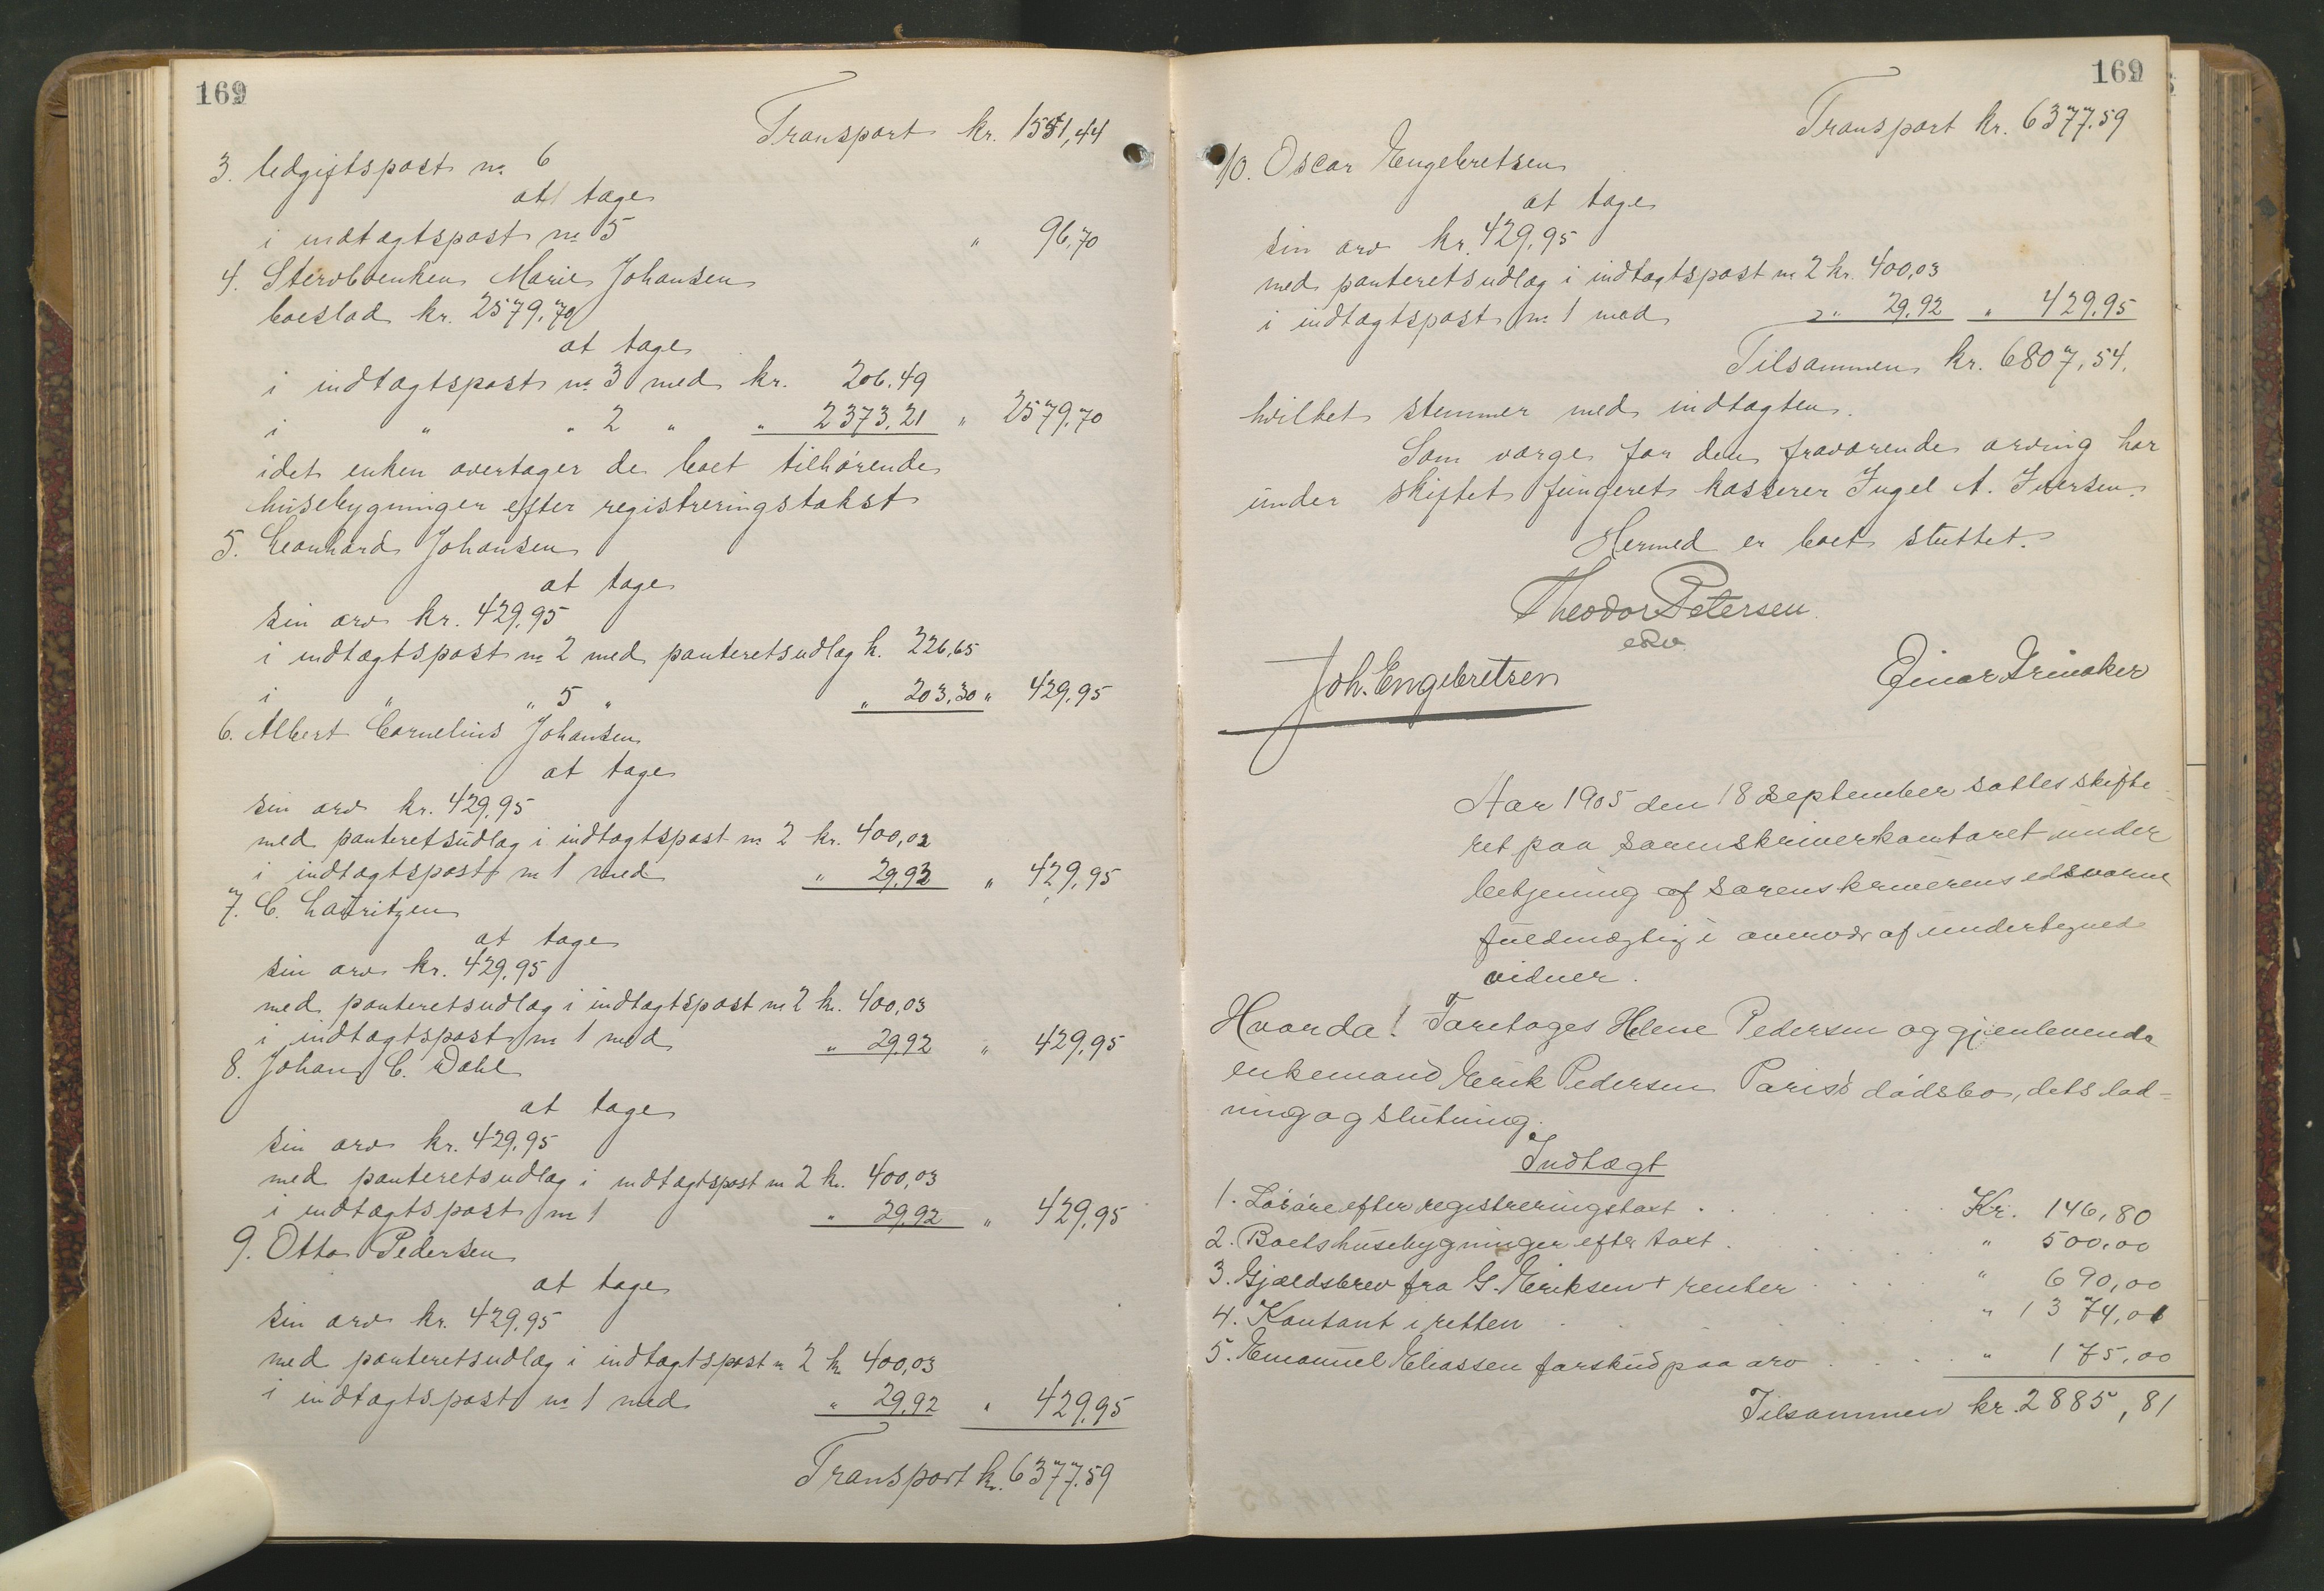 169
Transport kr. 1551,44
3. Udgiftspost no 6
at tage
i indtægtspost no 5 " 96,70
4. Stervboenken Marie Johansen
boeslod kr. 2579,70
at tage
i indtægtspost no 3 med kr. 206.49
i " " 2 " " 2373.21 " 2579.70
idet enken overtager de boet tilhørende
husebygninger efter registreringstakst
5. Leonhard Johansen
at tage
sin arv kr. 429,95
i indtægtspost no 2 med panteretsudlæg k. 226,65
i " " 5 " " 203,30 " 429,95
6. Albert Cornelius Johansen
at tage
sin arv kr. 429,95
med panteretsudlæg i indtægtspost no 2 kr. 400,03
i indtægtspost no 1 med " 29,92 " 429,95
7. C. Lauritzen
at tage
sin arv kr. 429,95
med panteretsudlæg i indtægtspost no 2 kr. 400,03
i indtægtspost no 1 med " 29,92 " 429,95
8. Johan C. Dahl
at tage
sin arv kr. 429,95
med panteretsudlæg i indtægtspost no 2 kr. 400,03
i indtægtspost no 1 " 29,92 " 429,95
9. Otto Pedersen
at tage
sin arv kr. 429,95
med panteretsudlæg i indtægtspost no 2 kr. 400,03
i indtægtspost no 1 med " 29,92 " 429,95
Transport kr. 6377.59
169
Transport kr. 6377.59
10. Oscar Engebretsen
at tage
sin arv kr. 429,95
med panteretsudlæg i indtægtspost no 2 kr. 400,03
i indtægtspost no 1 med " 29,92 " 429,95
Tilsammen kr. 6807,54.
hvilket stemmer med indtægten.
Som værge for den fraværende arving har
under skiftet fungeret kasserer Ingel A. Iversen.
Hermed er boet sluttet.
Theodor Petersen
edsv
Joh. Engebretsen
Einar
Aar 1905 den 18 September sattes skifte-
ret paa sorenskriverkontoret under
betjening af sorenskriverens edsvorne
fuldmægtig i overvær af undertegnede
vidner.
Hvorda! Foretoges Helene Pedersen og gjenlevende
enkemand Erik Pedersen Paris's dødsbo, dets lod=
ning og slutning.
Indtægt
1. Løsøre efter registreringstaxt . . . Kr. 146,80
2. Boets husebygninger efter taxt . . . " 500,00
3. Gjældsbrev fra G. Eriksen + renter . . . " 690,00
4. Kontant i retten . . . " 1374,01
5. Emanuel Eliassen forskud paa arv . . . " 175,00
Tilsammen kr 2885,81